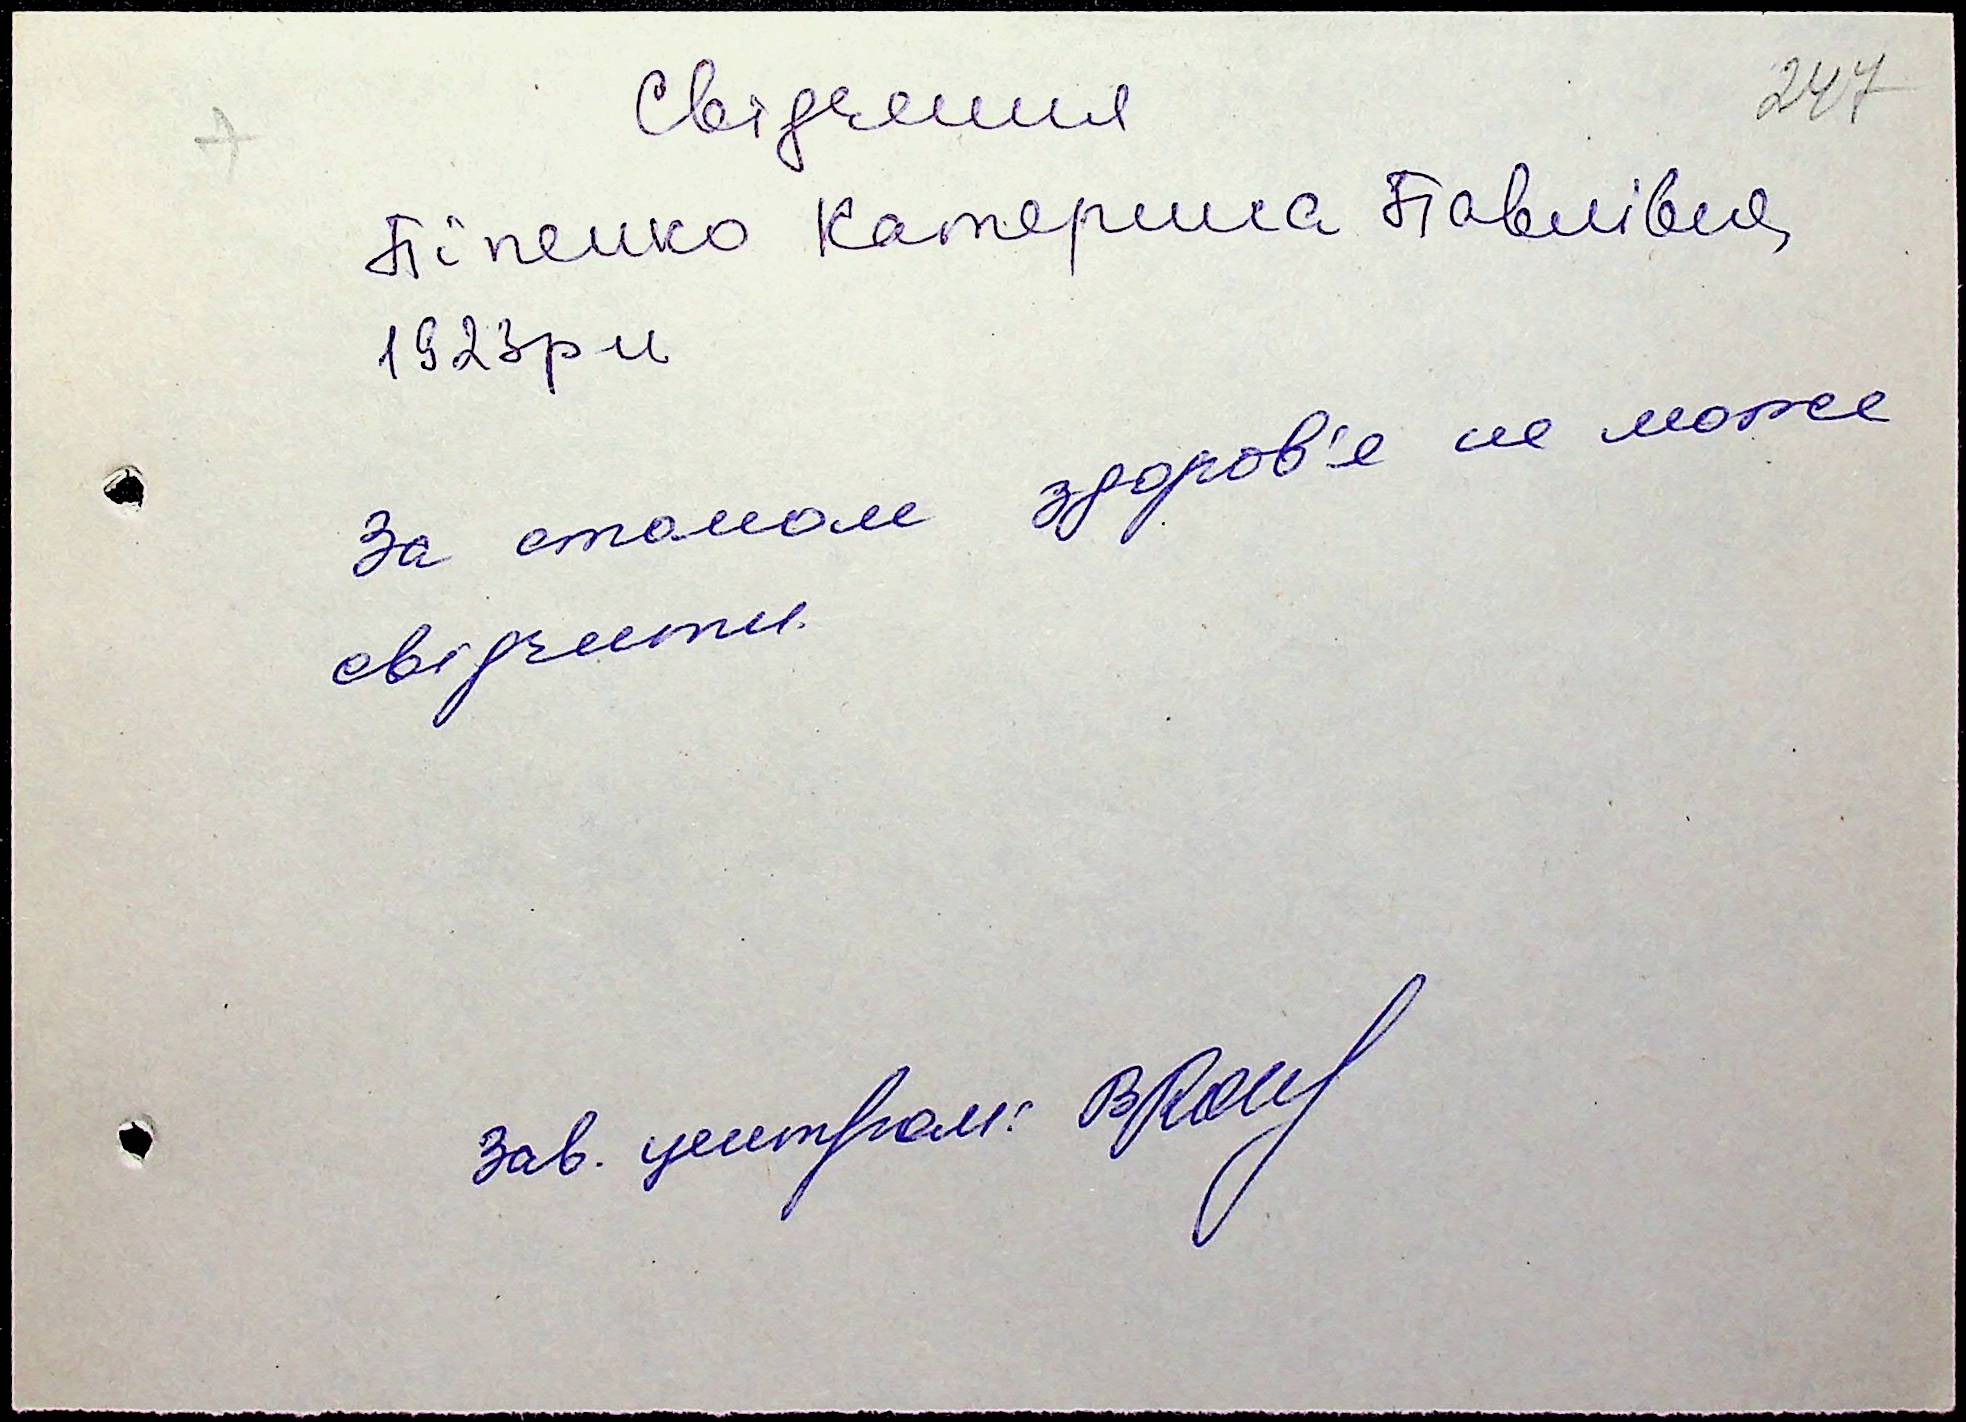 247
Свідчення
Піпенко Катерина Павлівна,
1923 р н
За станом здоров'я не може
свідчити.
Зав. центром: